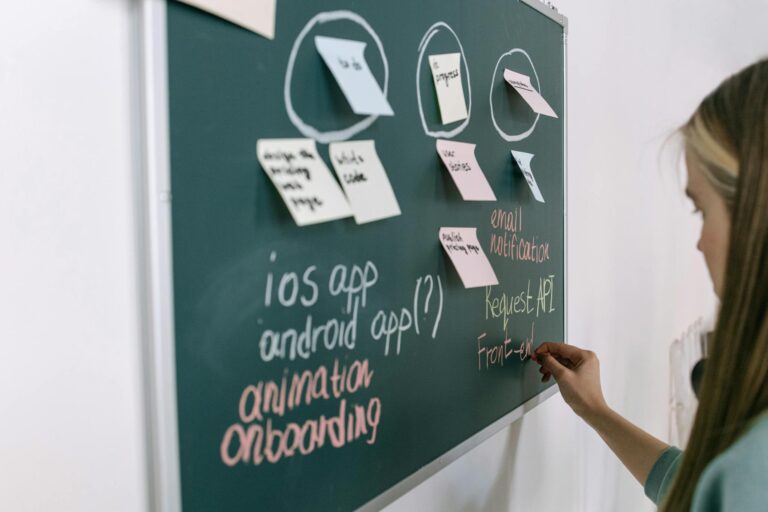 to do
in
progress
design the
pricing
web
page
write
code
user
stories
publish
pricing page
email
notification
ios app
android app(?)
animation
onboarding
Request API
Front-end